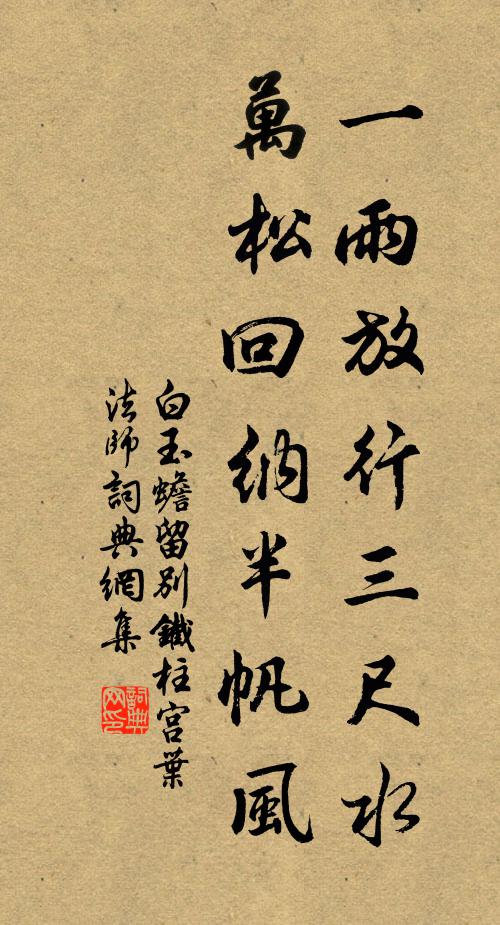 一雨放行三尺水
萬松回納半帆風
白玉蟾留別鐵柱宮葉
法師詞典網集
詞典網印